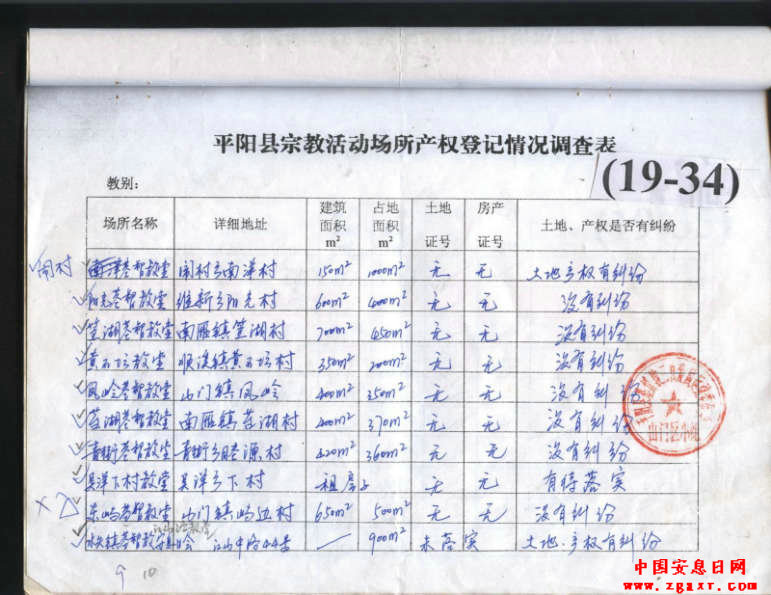 平阳县宗教活动场所产权登记情况调查表
(19-34)
教别:
场所名称 详细地址 建筑面积m² 占地面积m² 土地证号 房产证号 土地、产权是否有纠纷
闹村 基督教堂 闹村乡南洋村 150m² 1000m² 无 无 土地产权有纠纷
阳光基督教堂 维新乡阳光村 600m² 400m² 无 无 没有纠纷
笠湖基督教堂 南雁镇笠湖村 700m² 450m² 无 无 没有纠纷
黄 坛教堂 顺溪镇黄 坛村 350m² 200m² 无 无 没有纠纷
凤岭基督教堂 山门镇凤岭 400m² 350m² 无 无 没有纠纷
湖基督教堂 南雁镇 湖村 400m² 370m² 无 无 没有纠纷
青街基督教堂 青街乡 源村 420m² 360m² 无 无 没有纠纷
吴洋下村教堂 吴洋乡下村 租房 无 无 有待落实
东屿基督教堂 山门镇屿 村 650m² 500m² 无 无 没有纠纷
水头镇基督教 会 江山中路44号 — 900m² 未落实 土地、产权有纠纷
9 10
中国安息日网
www.zgaxr.com